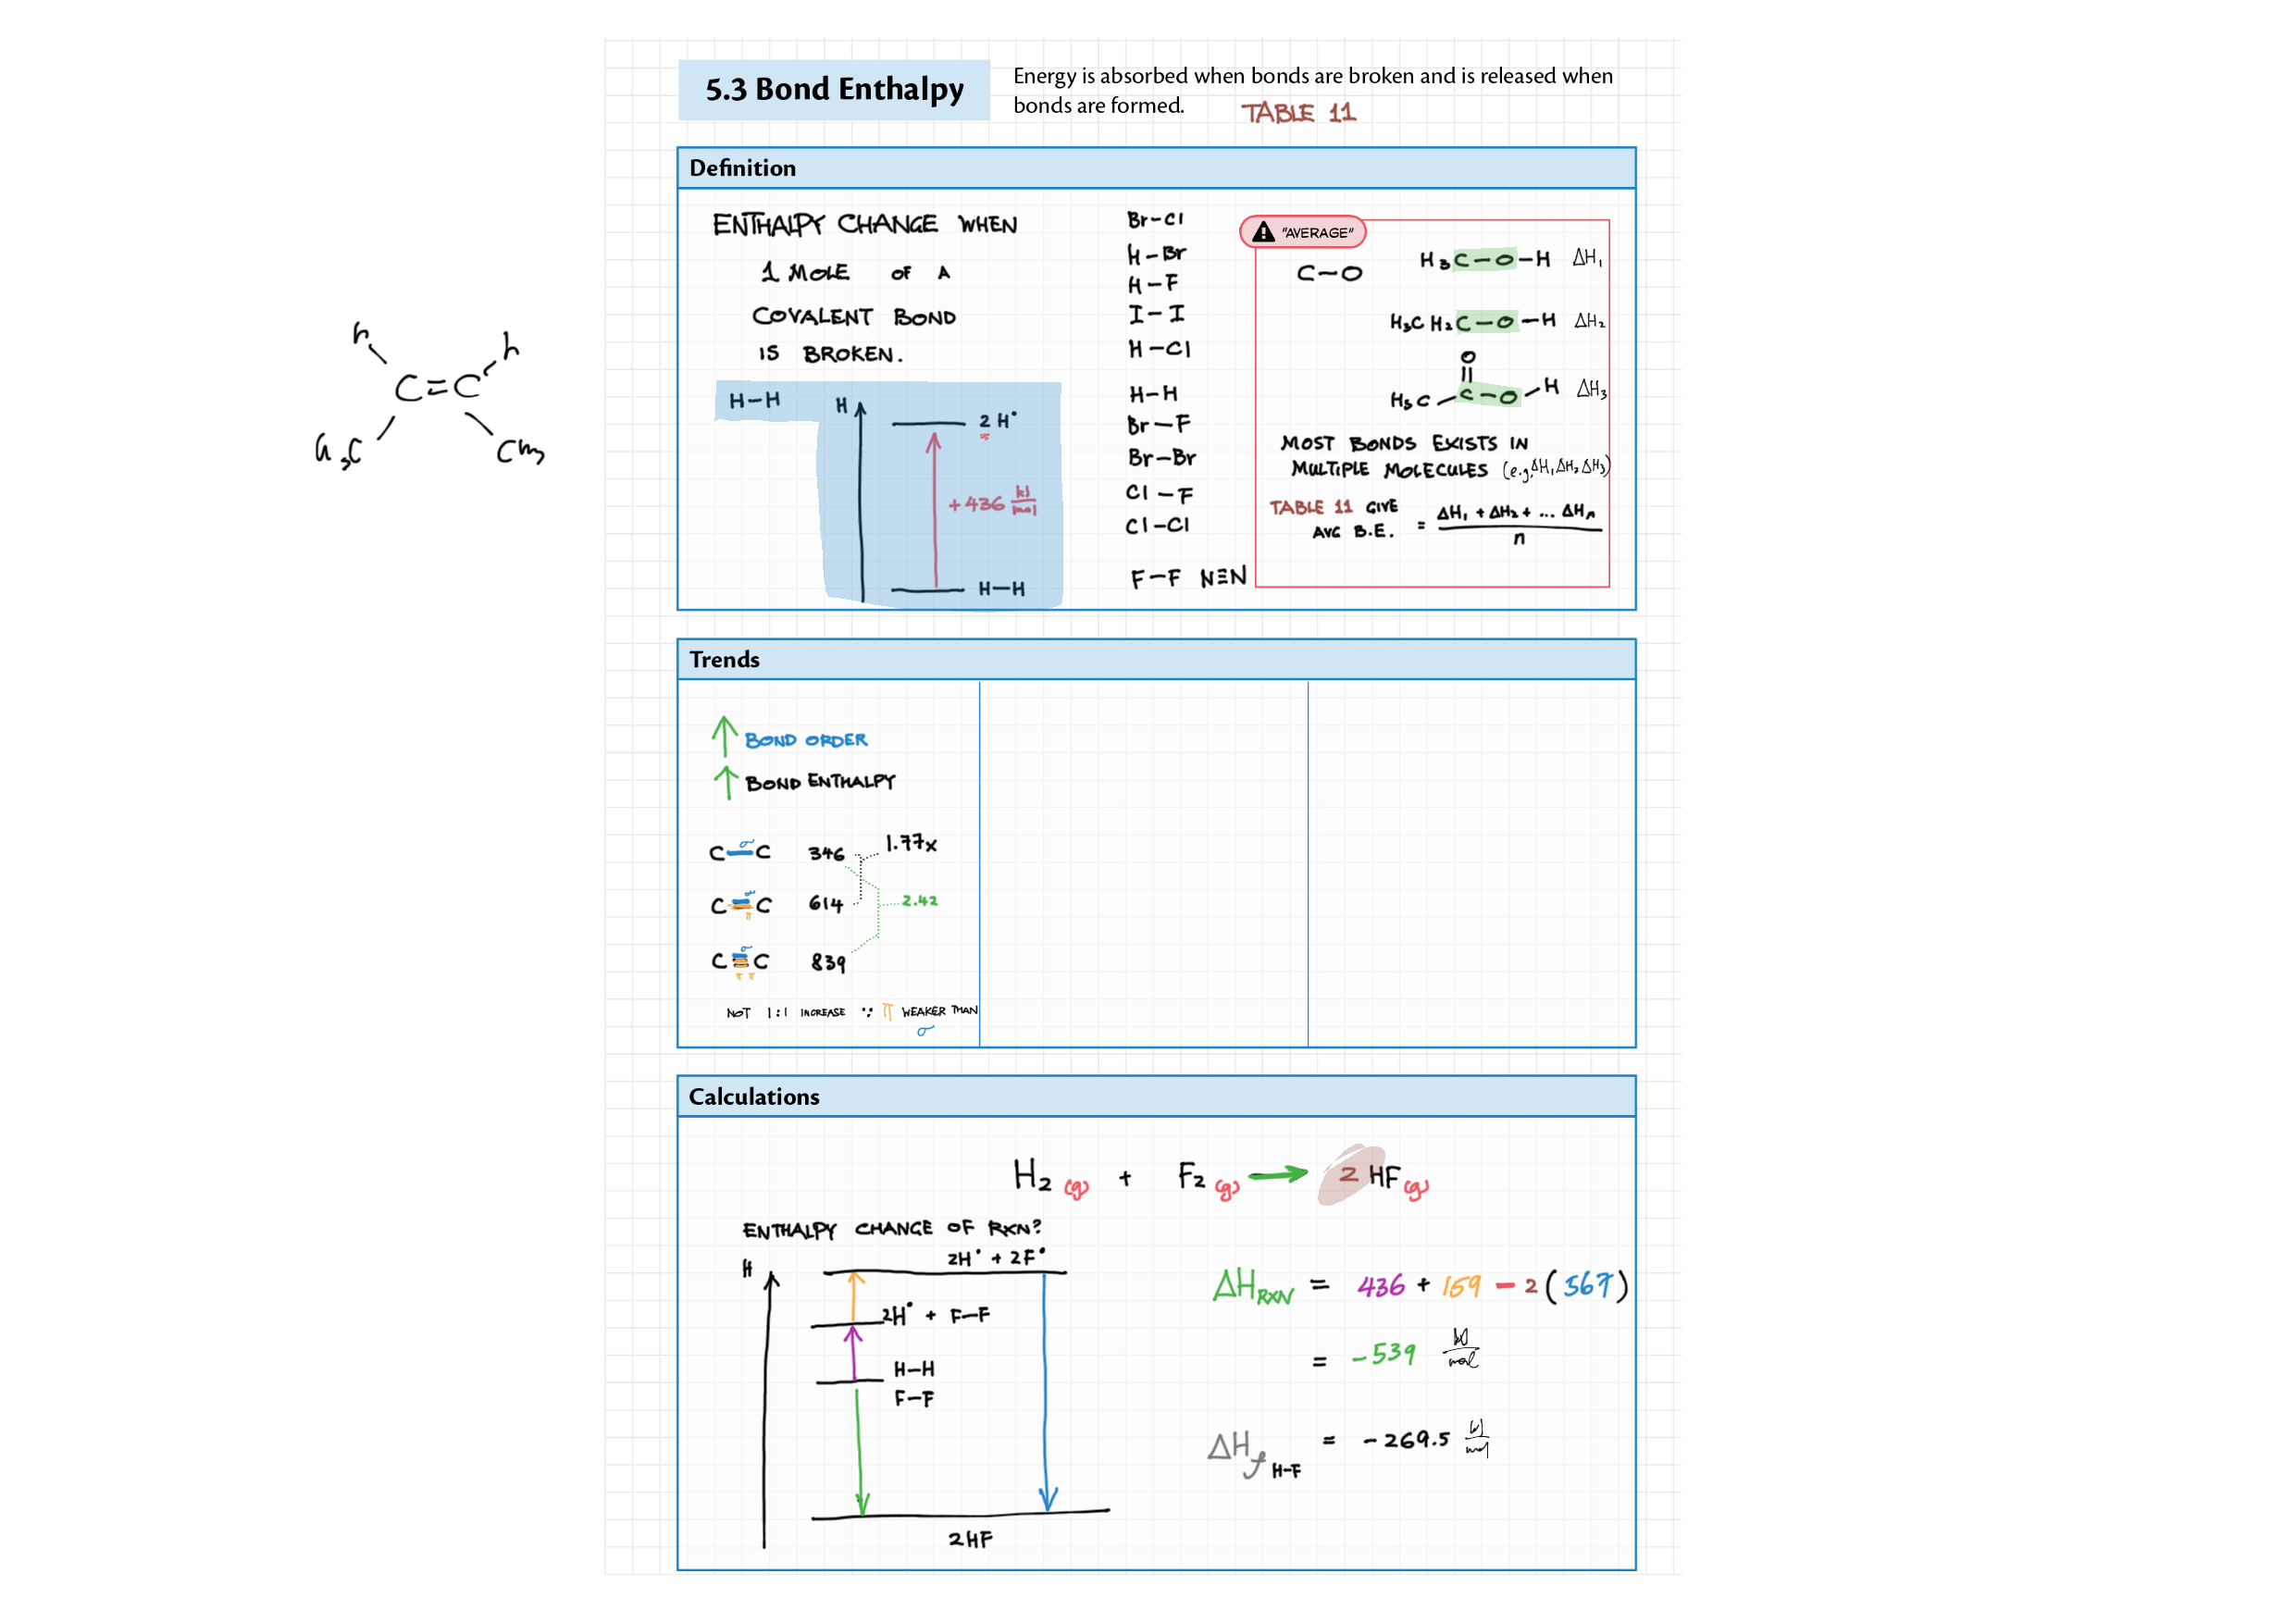 5.3 Bond Enthalpy
Energy is absorbed when bonds are broken and is released when
bonds are formed.
TABLE 11
Definition
ENTHALPY CHANGE WHEN
1 MOLE OF A
COVALENT BOND
IS BROKEN.
H-H
H
2 H•
+436 kJ/mol
H-H
Br-Cl
H-Br
H-F
I-I
H-Cl
H-H
Br-F
Br-Br
Cl-F
Cl-Cl
F-F N≡N
"AVERAGE"
C-O
H3C-O-H ΔH1
H3C H2C-O-H ΔH2
O
H3C C-O H ΔH3
MOST BONDS EXISTS IN
MULTIPLE MOLECULES (e.g. ΔH1 ΔH2 ΔH3)
TABLE 11 GIVE
AVG B.E. = ΔH1 + ΔH2 + ... ΔHn
n
h h
C=C
H3C CM3
Trends
↑ BOND ORDER
↑ BOND ENTHALPY
σ
C-C 346 1.77x
σ
C=C 614 2.42
π
σ
C≡C 839
π π
NOT 1:1 INCREASE ∵ π WEAKER THAN
σ
Calculations
H2 (g) + F2 (g) → 2 HF (g)
ENTHALPY CHANGE OF RXN?
H
2H• + 2F•
2H• + F-F
H-H
F-F
2HF
ΔH RXN = 436 + 159 - 2(567)
= -539 kJ/mol
ΔHf H-F = -269.5 kJ/mol